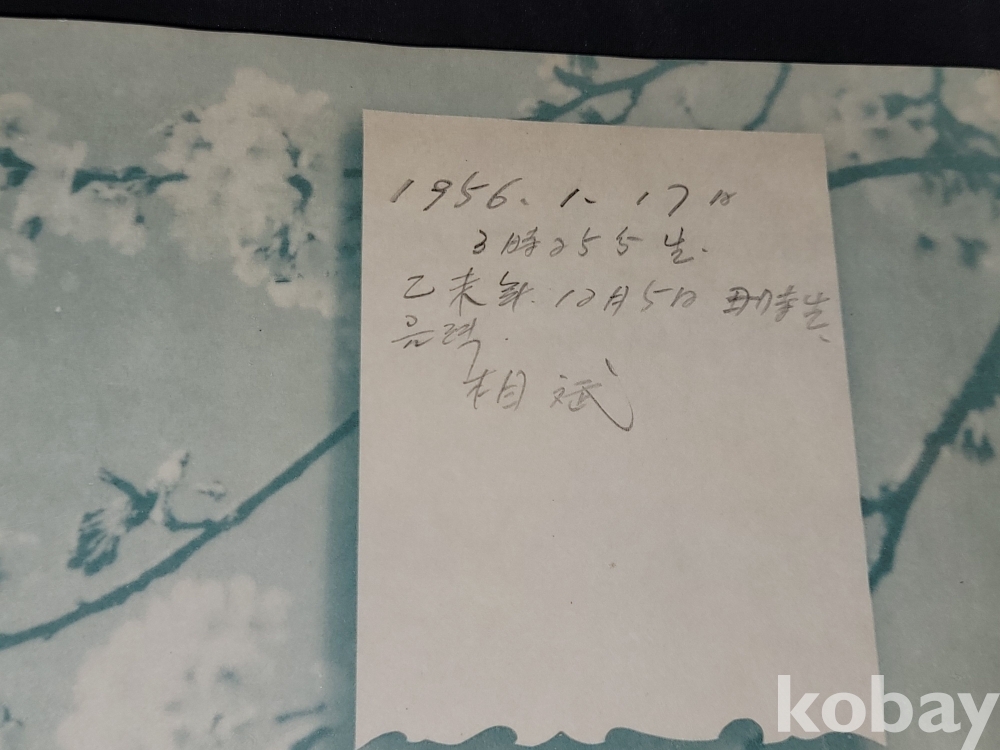 1956. 1. 17日
3時25分 生.
乙未年. 12月5日 丑時生.
음력.
相斌
kobay